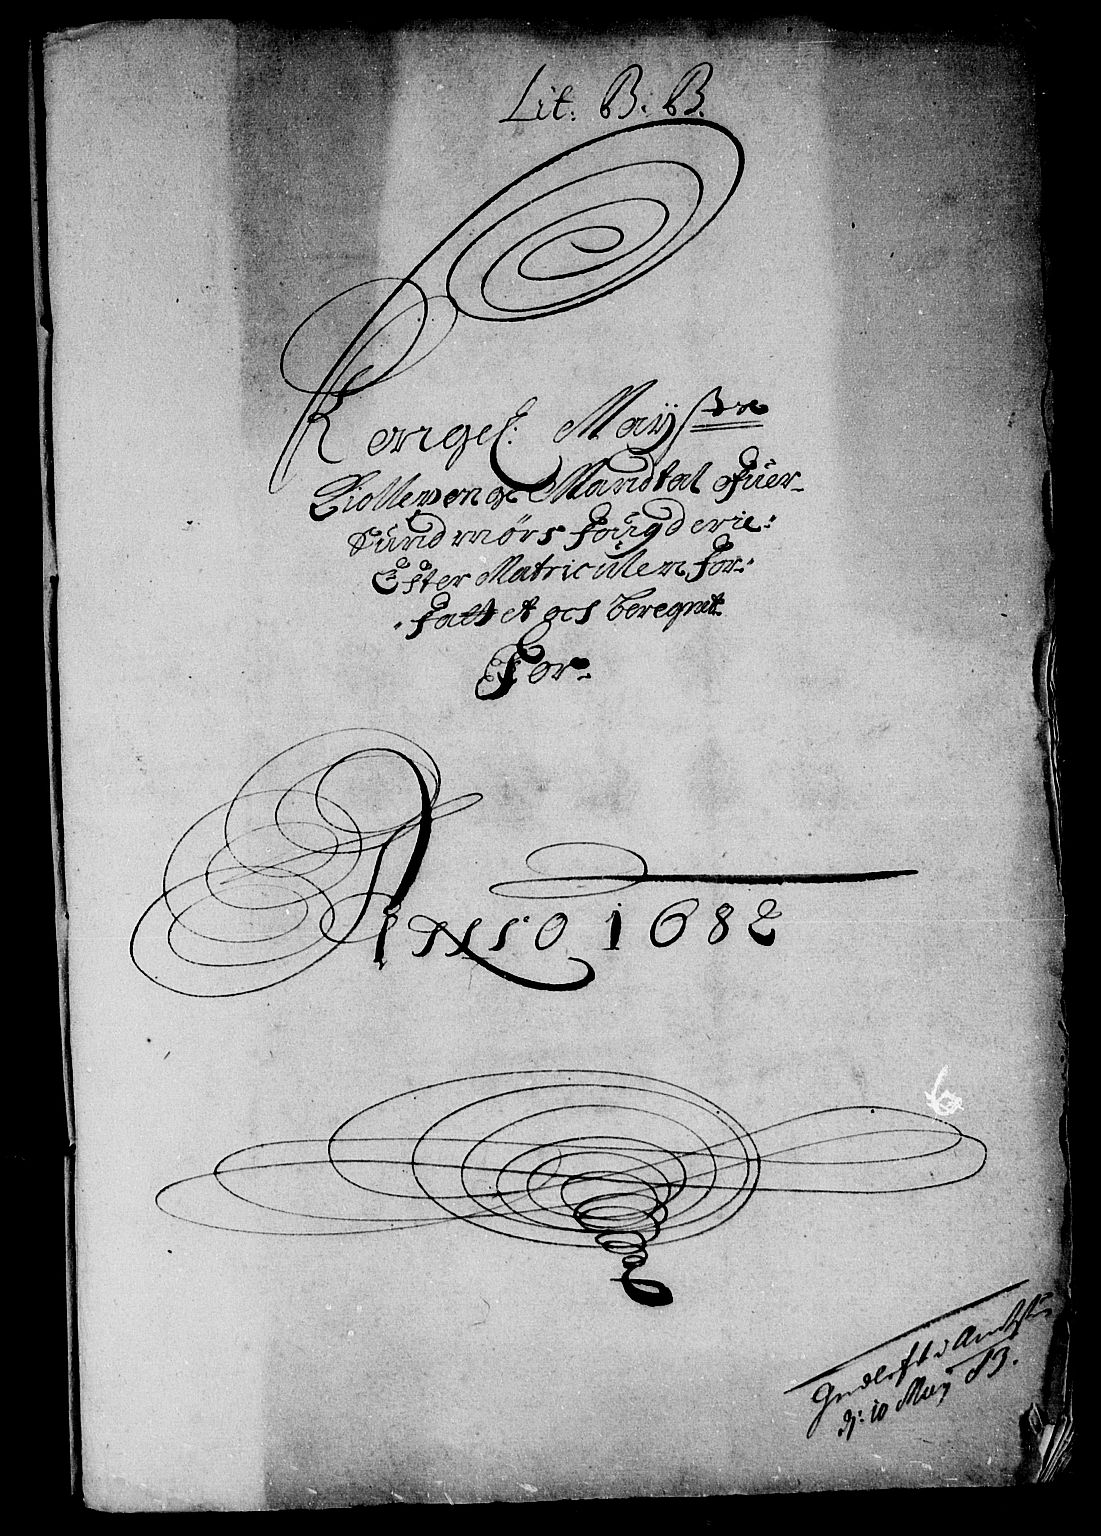 Lit: B: B.
Kongel: Maÿsten
Qvotteven og Mandtal ofuer
Sundmørs fougderie:
Efter Matriculen for:
fattet och beregnet
For
Anno 1682
6
Indleft i Amtst
d: 10 Maÿ 83.